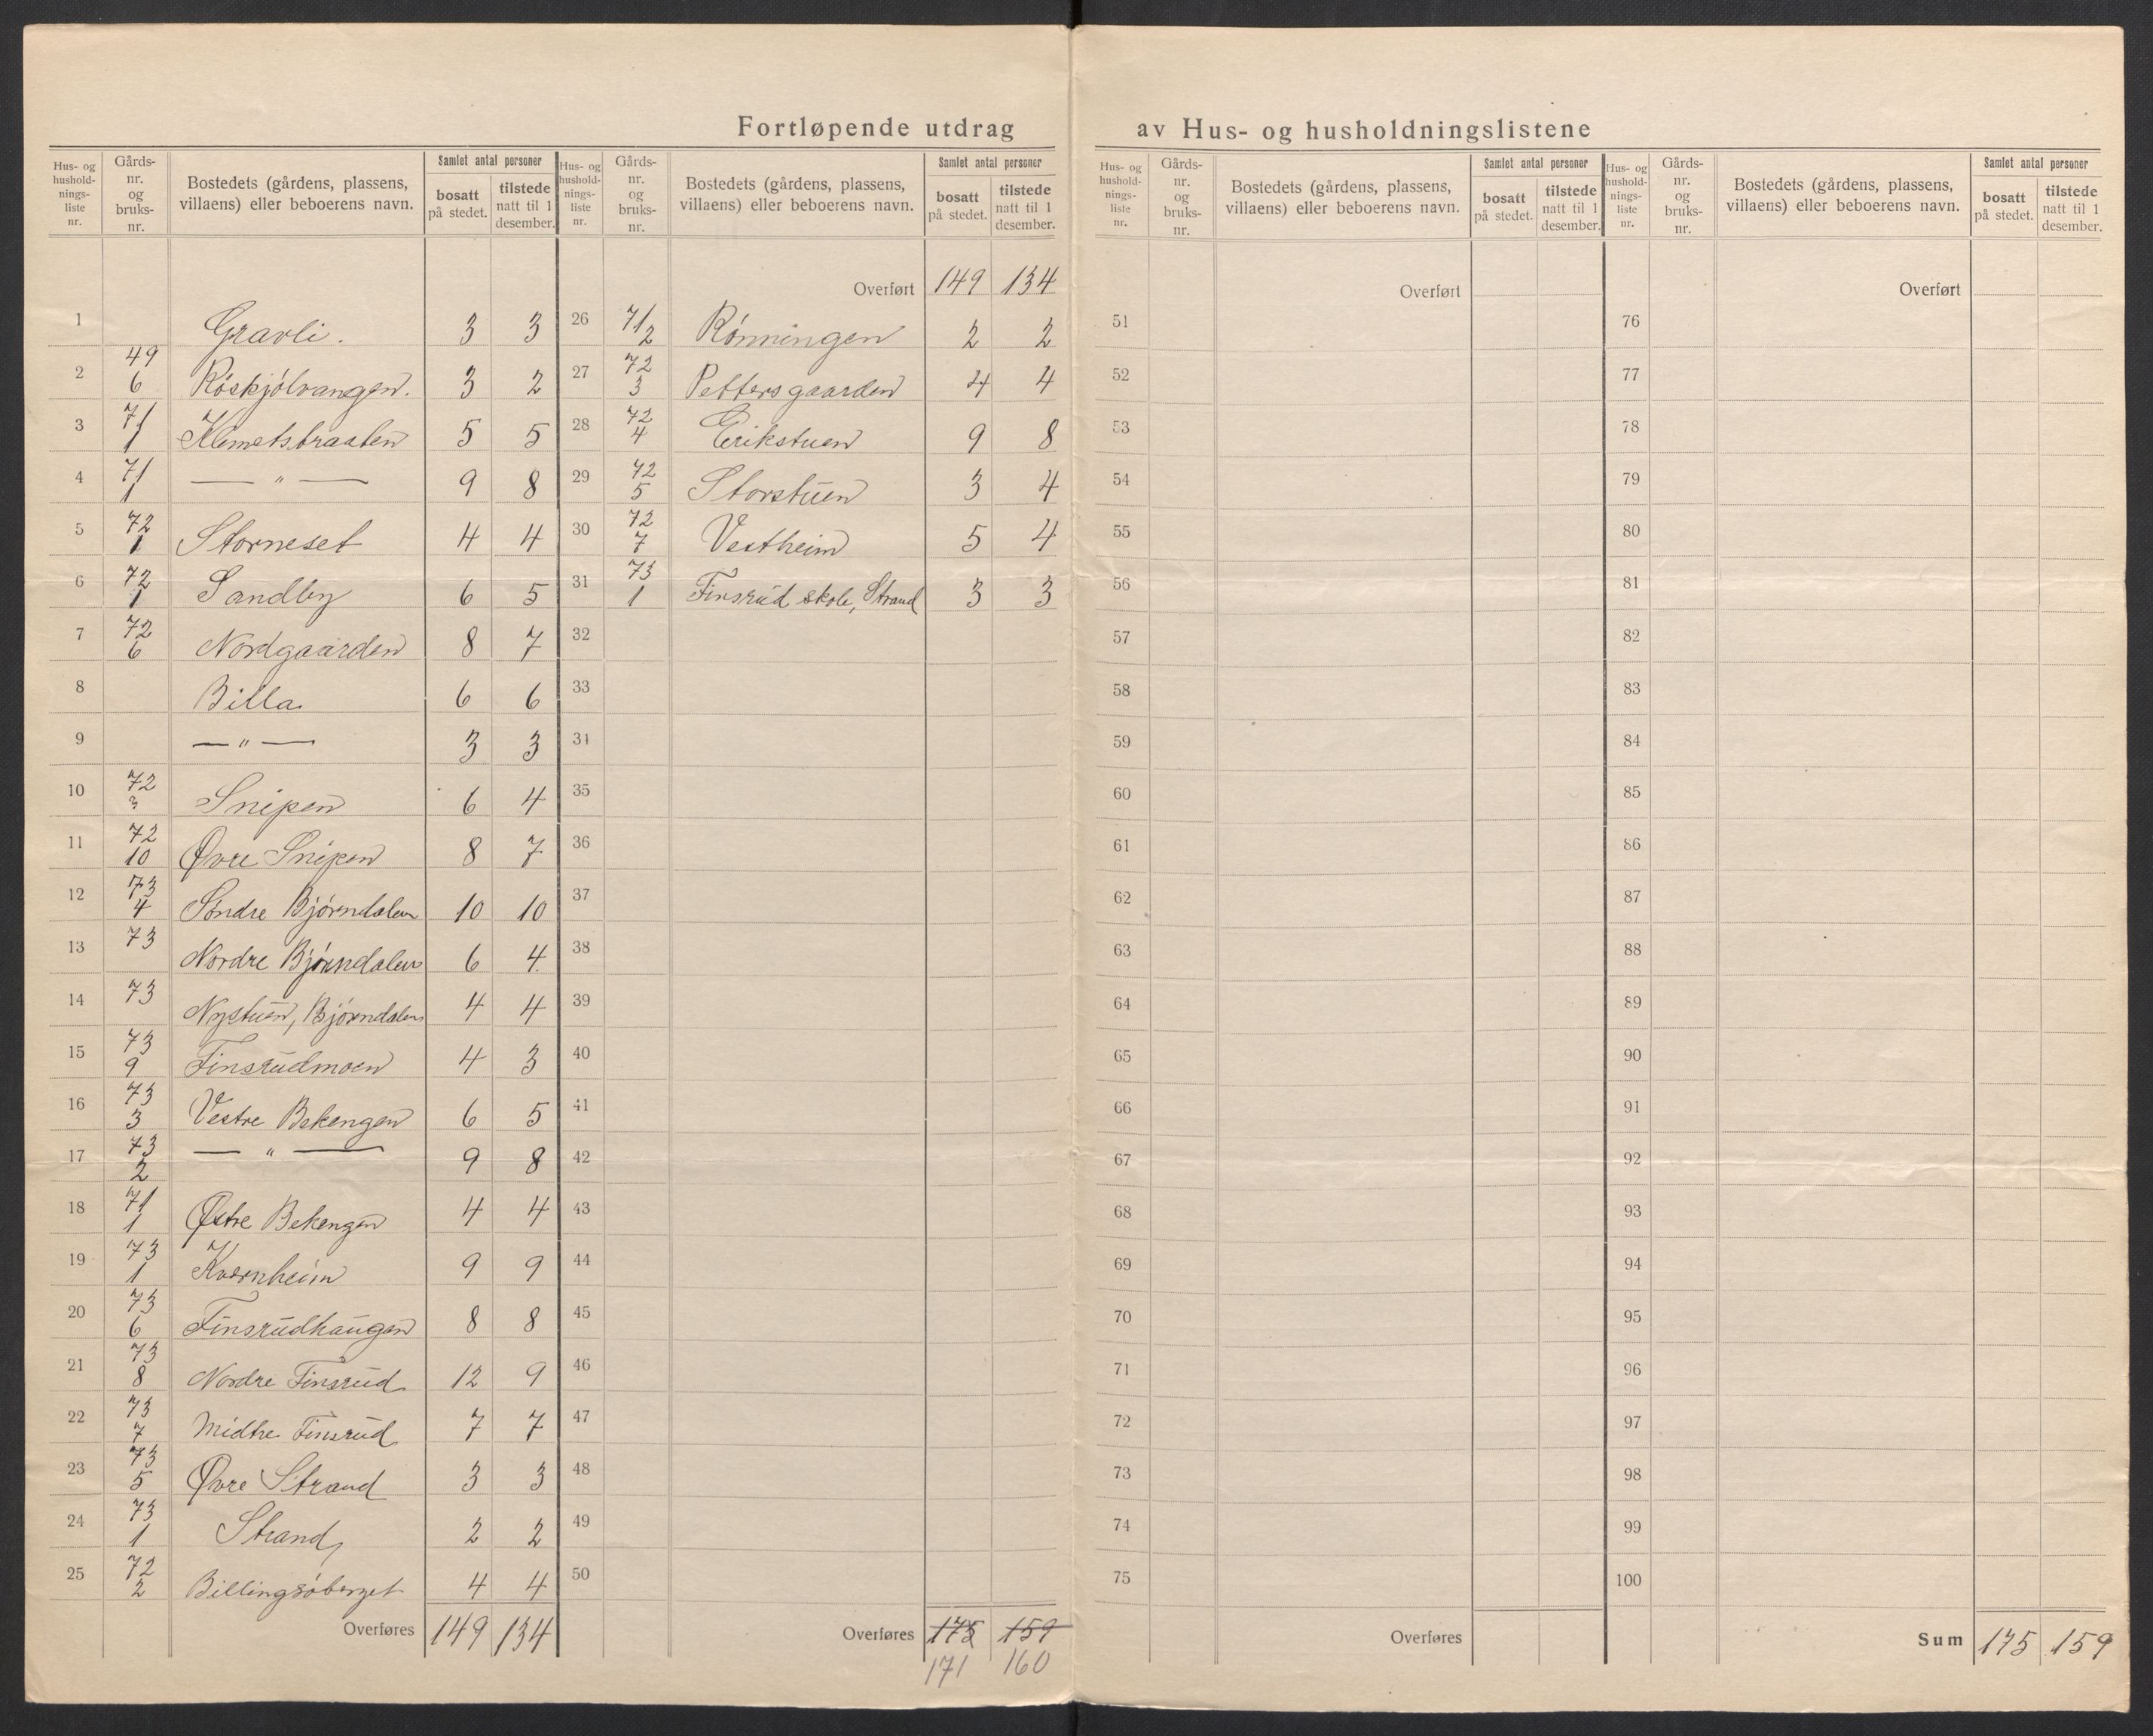 Fortløpende utdrag av Hus- og husholdningslistene
Hus- og hushold-nings-liste nr. | Gårds-nr. og bruks-nr. | Bostedets (gårdens, plassens, villaens) eller beboerens navn. | Samlet antal personer | bosatt på stedet. | tilstede natt til 1 desember.
1 Gravli. 3 3
2 49 6 Röskjölvangen. 3 2
3 71 1 Klemetsbraaten 5 5
4 71 1 — " — 9 8
5 72 1 Storneset 4 4
6 72 1 Sandby 6 5
7 72 6 Nordgaarden 8 7
8 Billa 6 6
9 — " — 3 3
10 72 3 Snipen 6 4
11 72 10 Øvre Snipen 8 7
12 73 4 Söndre Bjørndalen 10 10
13 73 Nordre Bjørndalen 6 4
14 73 Nystuen, Bjørndalen 4 4
15 73 9 Finsrudmoen 4 3
16 73 3 Vestre Bekengen 6 5
17 73 2 — " — 9 8
18 71 1 Østre Bekengen 4 4
19 73 1 Kvernheim 9 9
20 73 6 Finsrudhaugen 8 8
21 73 8 Nordre Finsrud 12 9
22 73 7 Midtre Finsrud 7 7
23 73 5 Øvre Strand 3 3
24 73 1 Strand 2 2
25 72 2 Billingsöberget 4 4
Overføres 149 134
Hus- og hushold-nings-liste nr. | Gårds-nr. og bruks-nr. | Bostedets (gårdens, plassens, villaens) eller beboerens navn. | Samlet antal personer | bosatt på stedet. | tilstede natt til 1 desember.
Overført 149 134
26 71/2 Rönningen 2 2
27 72 3 Pettersgaarden 4 4
28 72 4 Erikstuen 9 8
29 72 5 Storstuen 3 4
30 72 7 Vestheim 5 4
31 73 1 Finsrud skole, Strand 3 3
32
33
34
35
36
37
38
39
40
41
42
43
44
45
46
47
48
49
50
Overføres 175 159
171 160
Hus- og hushold-nings-liste nr. | Gårds-nr. og bruks-nr. | Bostedets (gårdens, plassens, villaens) eller beboerens navn. | Samlet antal personer | bosatt på stedet. | tilstede natt til 1 desember.
Overført
51
52
53
54
55
56
57
58
59
60
61
62
63
64
65
66
67
68
69
70
71
72
73
74
75
Overføres
Hus- og hushold-nings-liste nr. | Gårds-nr. og bruks-nr. | Bostedets (gårdens, plassens, villaens) eller beboerens navn. | Samlet antal personer | bosatt på stedet. | tilstede natt til 1 desember.
Overført
76
77
78
79
80
81
82
83
84
85
86
87
88
89
90
91
92
93
94
95
96
97
98
99
100
Sum 175 159